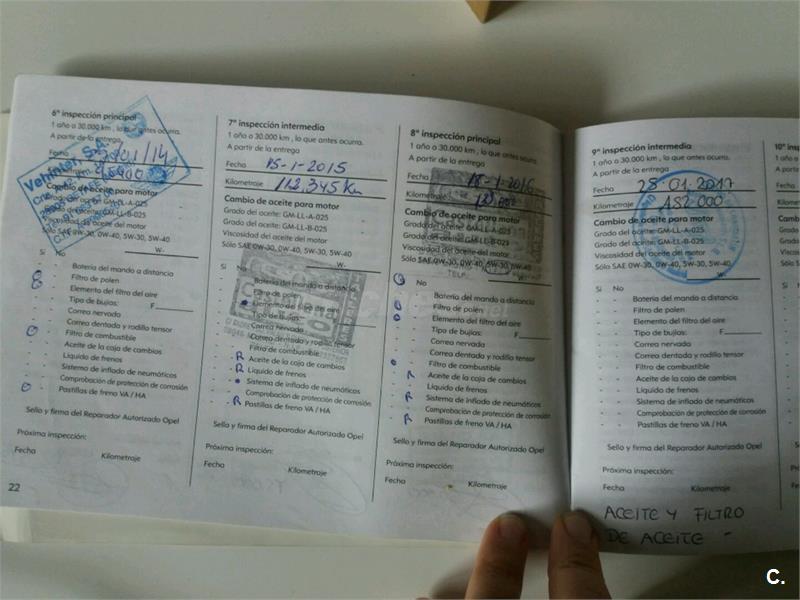 6ª inspección principal
1 año o 30.000 km, lo que antes ocurra.
A partir de la entrega
Fecha
Vehinter, S.A.
Cambio de aceite para motor
Grado del aceite: GM-LL-A-025
Grado del aceite: GM-LL-B-025
Viscosidad del aceite del motor
Sólo SAE 0W-30, 0W-40, 5W-30, 5W-40
W-
Sí No
Batería del mando a distancia
Filtro de polen
Elemento del filtro del aire
Tipo de bujías: F
Correa nervada
Correa dentada y rodillo tensor
Filtro de combustible
Aceite de la caja de cambios
Líquido de frenos
Sistema de inflado de neumáticos
Comprobación de protección de corrosión
Pastillas de freno VA / HA
Sello y firma del Reparador Autorizado Opel
Próxima inspección:
Fecha Kilometraje
22
7ª inspección intermedia
1 año o 30.000 km, lo que antes ocurra.
A partir de la entrega
Fecha 15-1-2015
Kilometraje 112,345 Km
Cambio de aceite para motor
Grado del aceite: GM-LL-A-025
Grado del aceite: GM-LL-B-025
Viscosidad del aceite del motor
Sólo SAE 0W-30, 0W-40, 5W-30, 5W-40
W-
Sí No
Batería del mando a distancia
Filtro de polen
Elemento del filtro del aire
Tipo de bujías:
Correa nervada
Correa dentada y rodillo tensor
Filtro de combustible
R Aceite de la caja de cambios
R Líquido de frenos
Sistema de inflado de neumáticos
Comprobación de protección de corrosión
R Pastillas de freno VA / HA
Sello y firma del Reparador Autorizado Opel
Próxima inspección:
Fecha Kilometraje
8ª inspección principal
1 año o 30.000 km, lo que antes ocurra.
A partir de la entrega
Fecha 18-1-2016
Kilometraje
Cambio de aceite para motor
Grado del aceite: GM-LL-A-025
Grado del aceite: GM-LL-B-025
Viscosidad del aceite del motor
Sólo SAE 0W-30, 0W-40, 5W-30, 5W-40
W-
No
Batería del mando a distancia
Filtro de polen
Elemento del filtro del aire
Tipo de bujías: F
Correa nervada
Correa dentada y rodillo tensor
Filtro de combustible
R Aceite de la caja de cambios
Líquido de frenos
R Sistema de inflado de neumáticos
Comprobación de protección de corrosión
R Pastillas de freno VA / HA
Sello y firma del Reparador Autorizado Opel
Próxima inspección:
Fecha Kilometraje
9ª inspección intermedia
1 año o 30.000 km, lo que antes ocurra.
A partir de la entrega
Fecha 28.01.2017
Kilometraje 182.000
Cambio de aceite para motor
Grado del aceite: GM-LL-A-025
Grado del aceite: GM-LL-B-025
Viscosidad del aceite del motor
Sólo SAE 0W-30, 0W-40, 5W-30, 5W-40,
W-
Sí No
Batería del mando a distancia
Filtro de polen
Elemento del filtro del aire
Tipo de bujías: F
Correa nervada
Correa dentada y rodillo tensor
Filtro de combustible
Aceite de la caja de cambios
Líquido de frenos
Sistema de inflado de neumáticos
Comprobación de protección de corrosión
Pastillas de freno VA / HA
Sello y firma del Reparador Autorizado Opel
Próxima inspección:
Fecha Kilometraje
ACEITE Y FILTRO
DE ACEITE -
10ª
C.